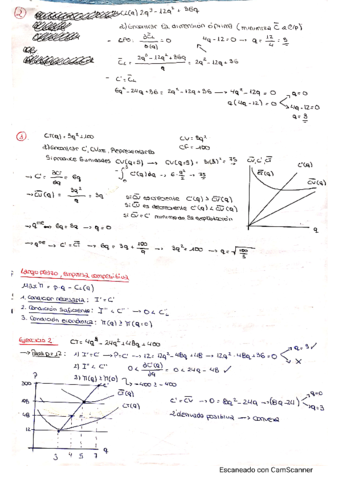 ② C_L(q) 2q³-12q²+36q
a) Encontrar la dimensión óptima (minimiza C̄ a L/p)
- CPO: ∂C̄_L/∂(q) = 0   4q-12=0 → q = 12/4 = 3
- C̄_L = 2q³-12q²+36q / q = 2q²-12q+36
- C̄ = C'
6q²-24q+36 = 2q²-12q+36 → 4q²-12q=0 → q=0
q(4q-12)=0 4q-12=0
q=3
③ CT(q) = 3q²+100   CV = 3q²
CF = 100
a) Encontrar C', CVMe. Representarlos
Si produce 5 unidades CV(q=5) → CV(q=5) = 3(5)² = 75
→ C' = ∂C/∂q = 6q   ∫₀⁵ C'(q)dq = 6·5²/2 = 75
→ C̄V(q) = 3q²/q = 3q
Si C̄V es creciente C'(q) > C̄V(q)
Si C̄V es decreciente C'(q) < C̄V(q)
Si C̄V = C' mínimo de la explotación
C̄V, C̄, C'
C'(q)
C̄(q)
C̄V(q)
q
→ q^ME → 6q=0 → q=0
→ q^OE → C'=C̄ → 6q = 3q + 100/q → 3q²=100 → q=√(100/3)
Largo plazo, empresa competitiva
Máx Π = p·q - C_L(q)
1. Condición necesaria: I' = C'
2. Condición suficiente: I'' < C'' → 0 < C''_L
3. Condición económica: Π(q) ≥ Π(q=0)
Ejercicio 2   CT = 4q³-24q²+48q+400
→ Para p=12: 1) I'=C' → P=C' → 12=12q²-48q+48 → 12q²-48q+36=0 → q=3 ✓
q=1 X
2) I'' < C'' 0 < ∂C'(q)/∂q → 0 < 24q-48 ✓
3) Π(q) ≥ Π(0) → -400 ≥ -400
P
300
108
48
12
3 4 5 7 q
C'
C̄(q)
C̄V(q)
C' = C̄V → 0 = 8q²-24q → (8q-24) q=0
q=3
2ª derivada positiva → convexa
Escaneado con CamScanner